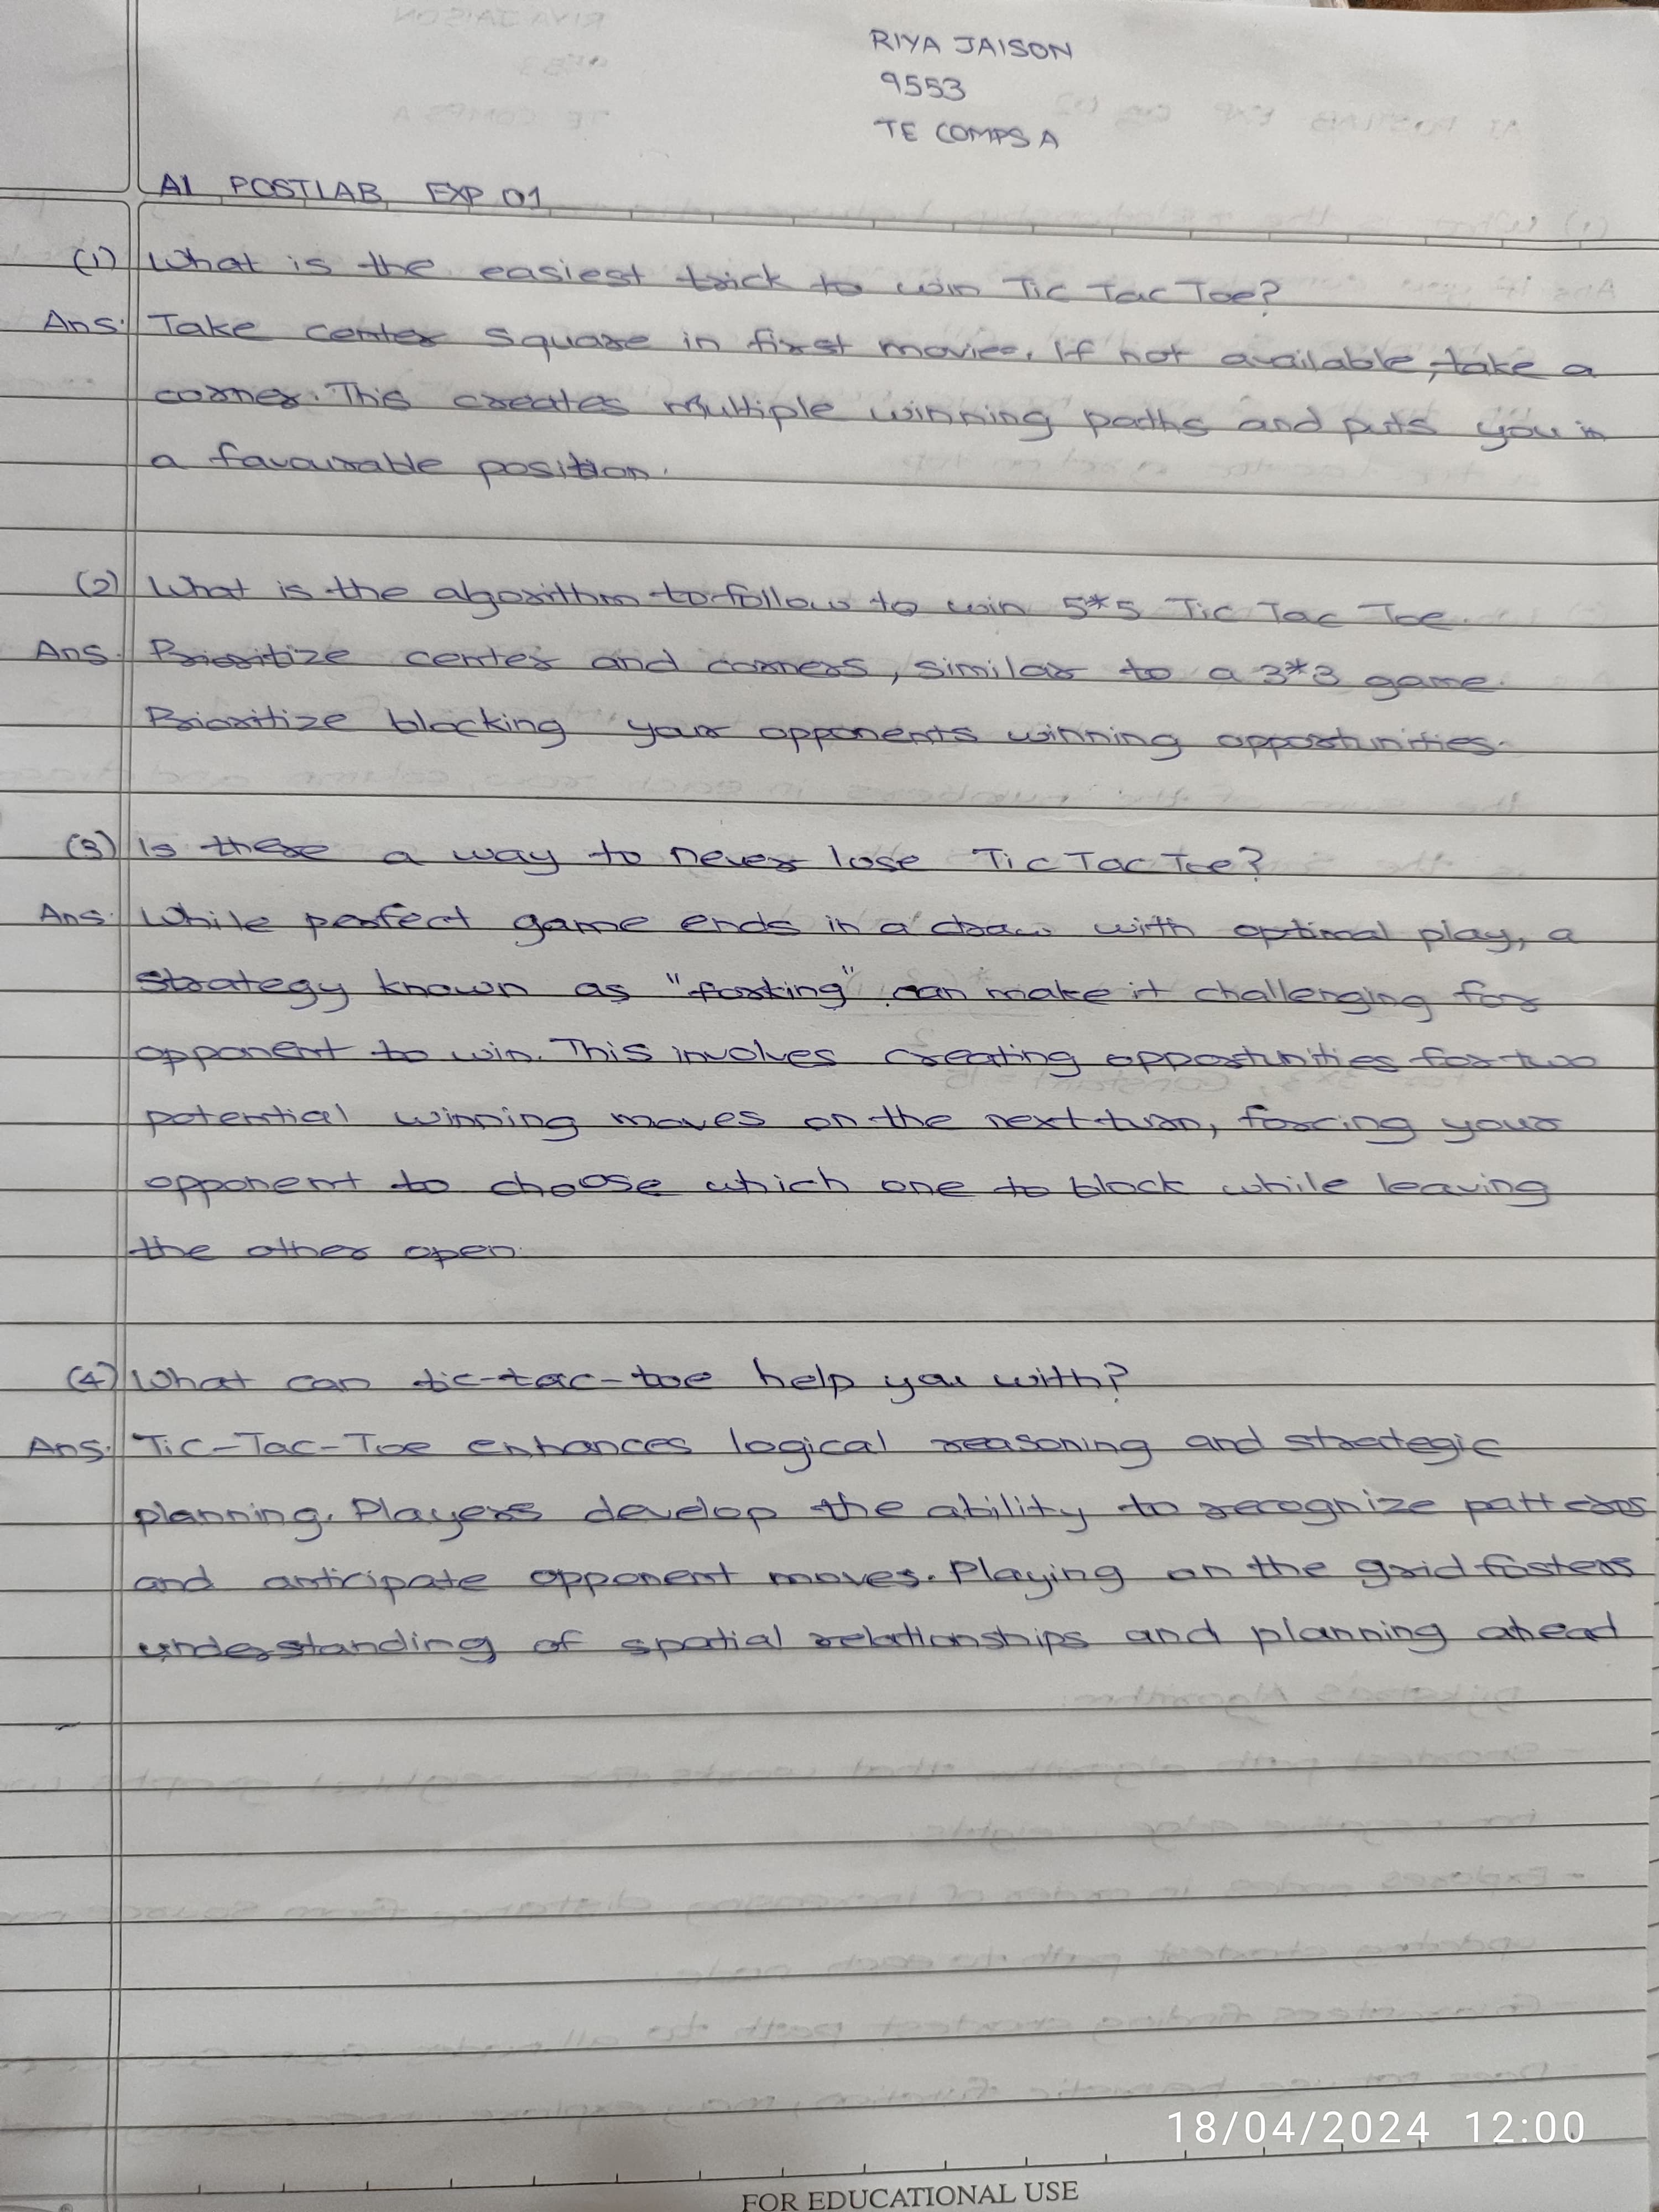 RIYA JAISON
9553
TE COMPS A
AI POSTLAB EXP 01
(1) What is the easiest trick to win Tic Tac Toe?
Ans: Take center square in first movies. If not available, take a
corner. This creates multiple winning paths and puts you in
a favourable position.
(2) What is the algorithm to follow to win 5*5 Tic Tac Toe.
Ans. Prioritize center and corners, similar to a 3*3 game.
Prioritize blocking your opponents winning opportunities.
(3) Is there a way to never lose Tic Tac Toe?
Ans: While perfect game ends in a draw with optimal play, a
strategy known as "forking" can make it challenging for
opponent to win. This involves creating opportunities for two
potential winning moves on the next turn, forcing your
opponent to choose which one to block while leaving
the other open.
(4) What can tic-tac-toe help you with?
Ans: Tic-Tac-Toe enhances logical reasoning and strategic
planning. Players develop the ability to recognize patterns
and anticipate opponent moves. Playing on the grid fosters
understanding of spatial relationships and planning ahead
18/04/2024 12:00
FOR EDUCATIONAL USE